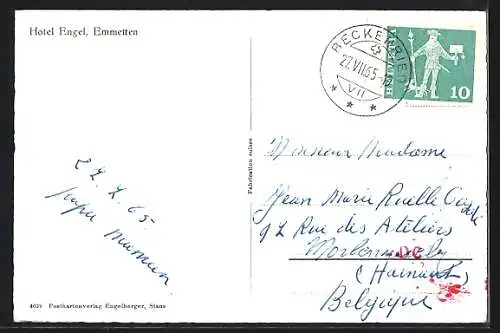 Hotel Engel, Emmetten
BECKENRIED
27.VII.65
VII
HELVETIA
10
Fabrication suisse
Monsieur Madame
Jean Marie Ruelle
92 Rue des Ateliers
Morlanwelz
DC
(Hainaut)
Belgique
27. 7. 65.
papa maman
4629 Postkartenverlag Engelberger, Stans